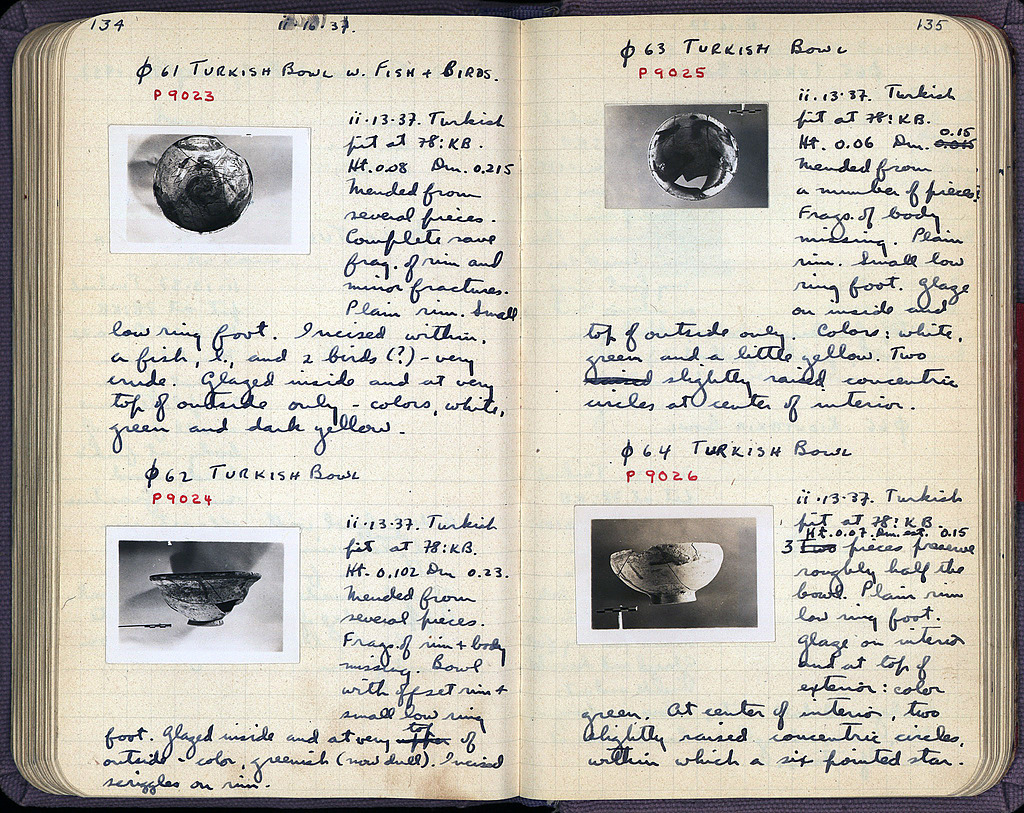 134
11·16·37.
φ 61 TURKISH BOWL W. FISH + BIRDS.
P 9023
ii·13·37. Turkish
pit at 78:KB.
Ht. 0.08 Dm. 0.215
Mended from
several pieces.
Complete save
frag. of rim and
minor fractures.
Plain rim. Small
low ring foot. Incised within,
a fish, l., and 2 birds (?) - very
crude. Glazed inside and at very
top of outside only - colors, white,
green and dark yellow.
φ 62 TURKISH BOWL
P 9024
ii·13·37. Turkish
pit at 78:KB.
Ht. 0.102 Dm 0.23.
Mended from
several pieces.
Frags. of rim + body
missing. Bowl
with offset rim +
small low ring
foot. Glazed inside and at very top of
outside - color, greenish (now dull). Incised
squiggles on rim.
135
φ 63 TURKISH BOWL
P 9025
ii·13·37. Turkish
pit at 78:KB.
Ht. 0.06 Dm. 0.15
Mended from
a number of pieces:
Frags. of body
missing. Plain
rim. Small low
ring foot. Glaze
on inside and
top of outside only. Colors: white,
green and a little yellow. Two
slightly raised concentric
circles at center of interior.
φ 64 TURKISH BOWL
P 9026
ii·13·37. Turkish
pit at 78:KB.
Ht. 0.07. Dm. est. 0.15
3 pieces preserve
roughly half the
bowl. Plain rim
low ring foot.
Glaze on interior
and at top of
exterior: color
green. At center of interior, two
slightly raised concentric circles,
within which a six pointed star.